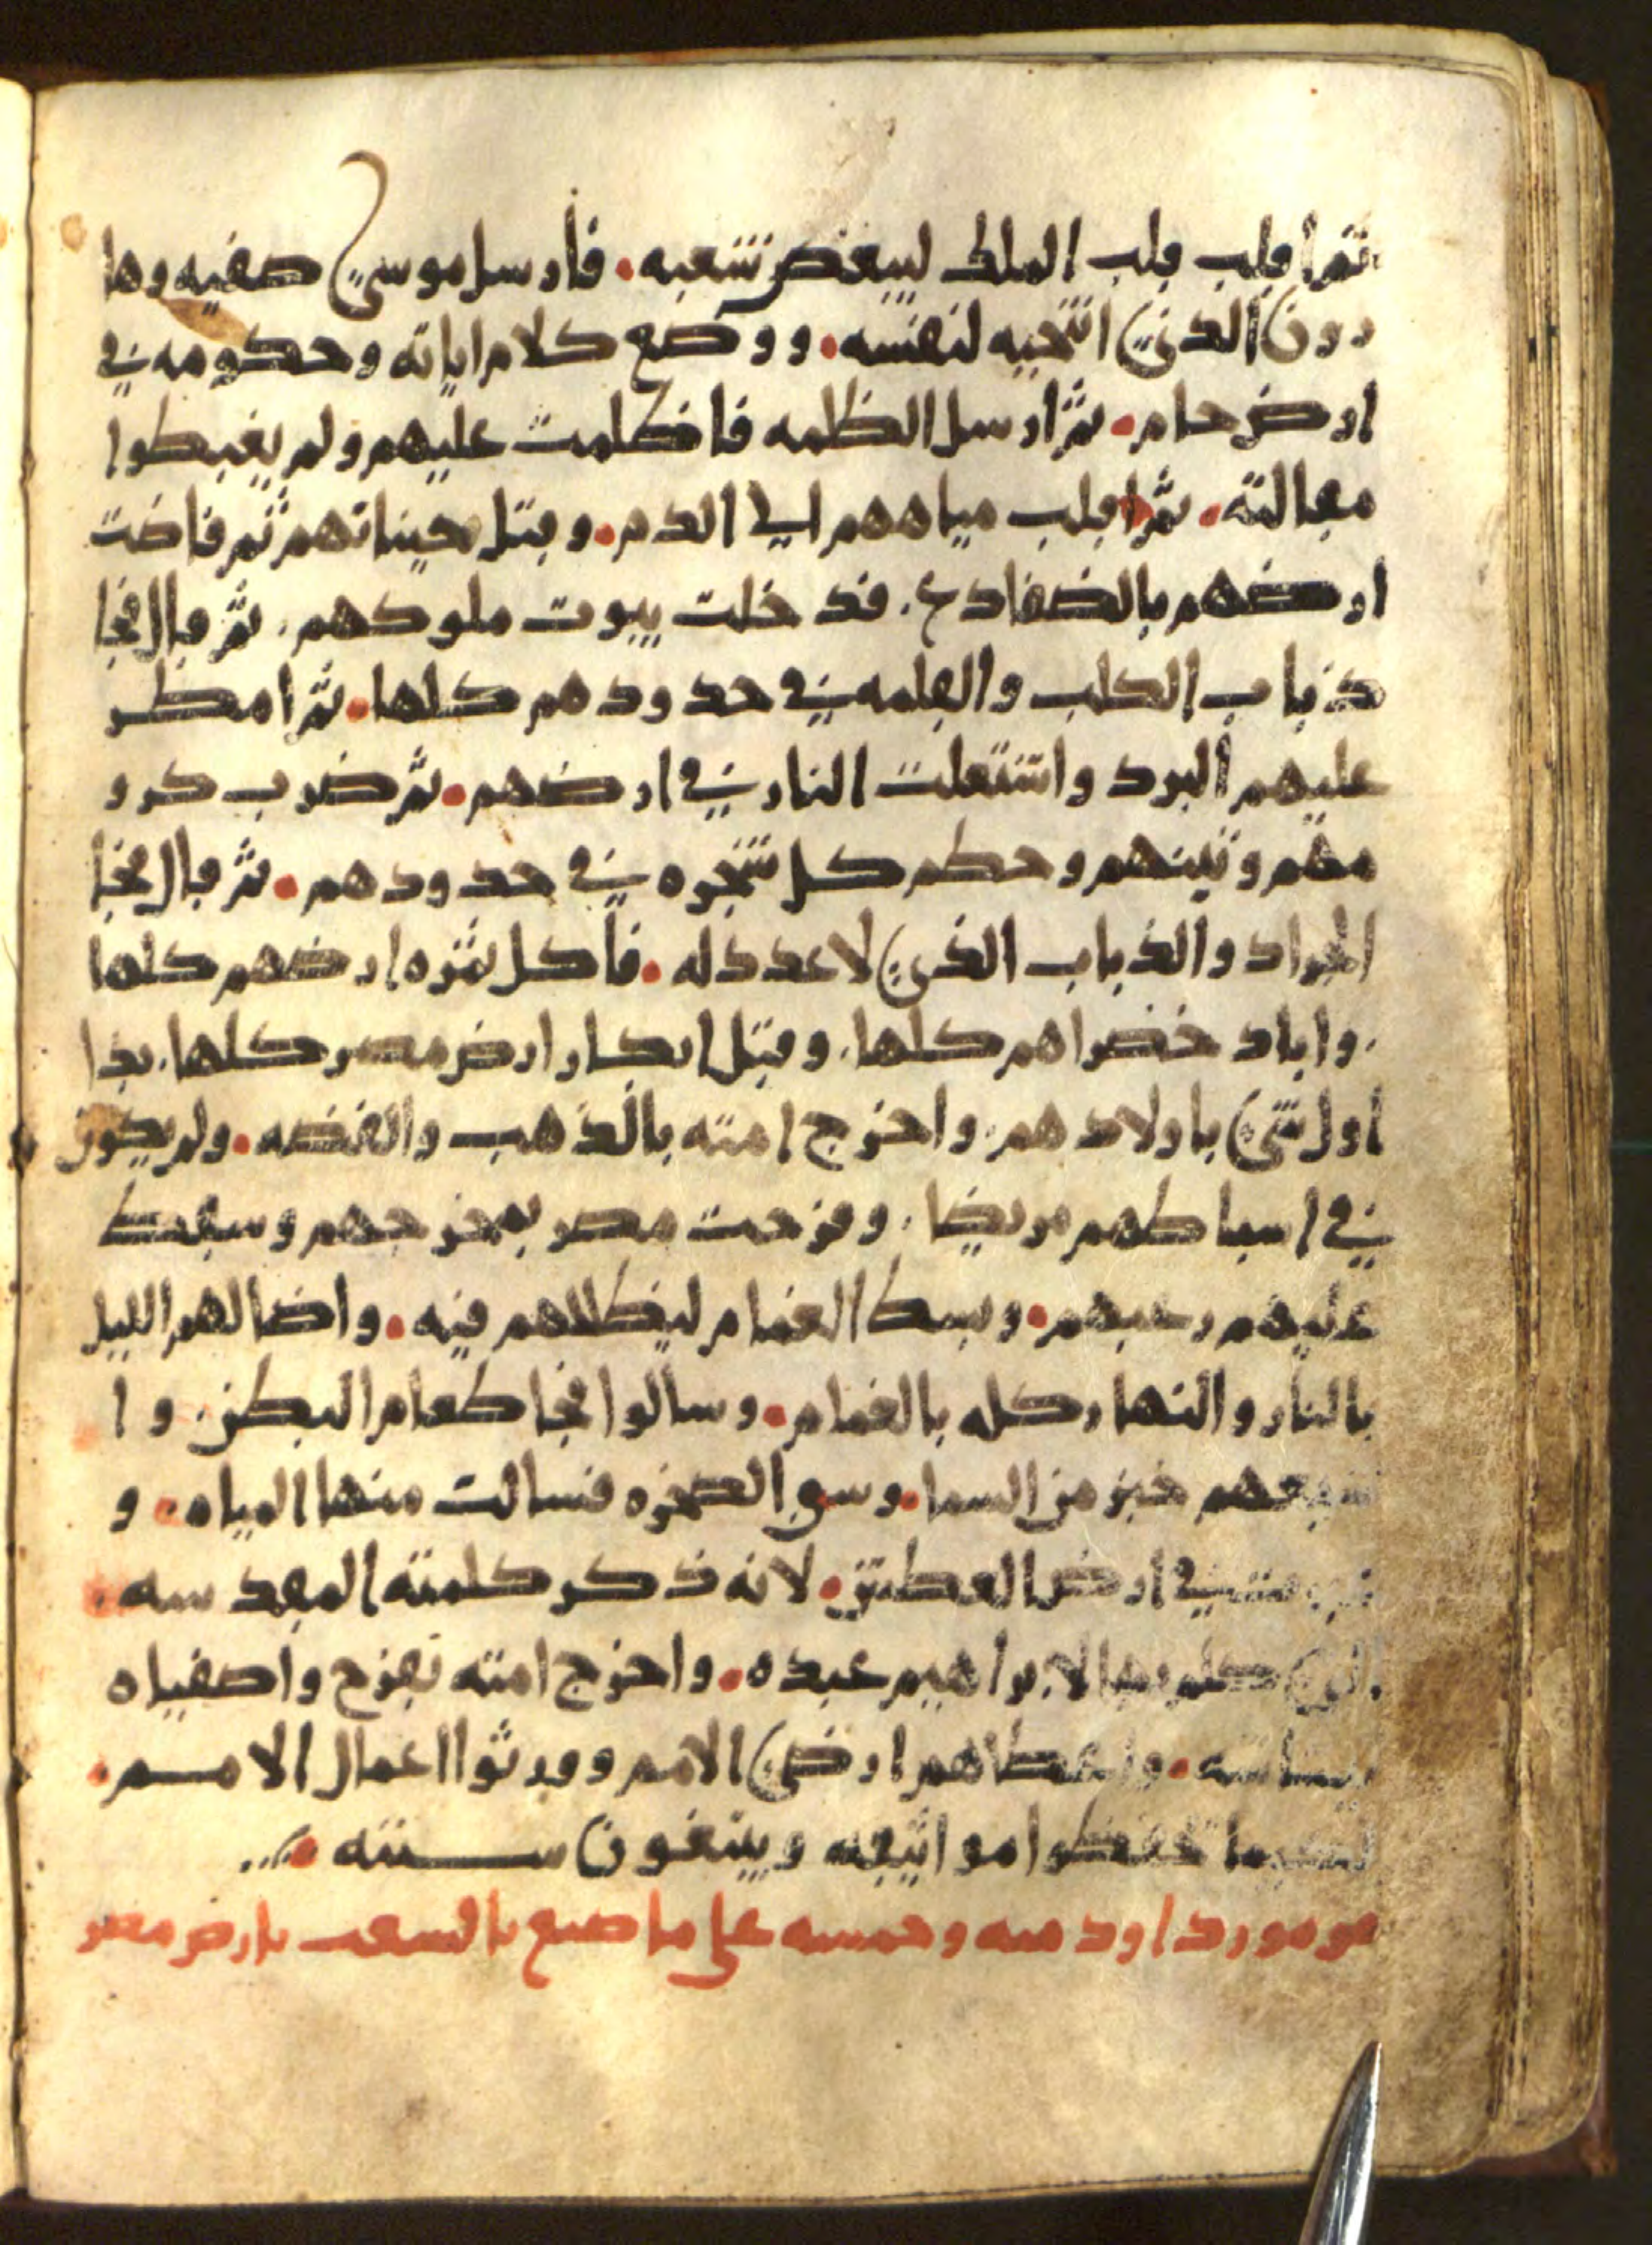 ثم اقلب قلب الملك ليبغض شعبه. فأرسل موسى صفيه وها
رون الذي انتجبه لنفسه. ووضع كلام اياته وحكومه في
ارض حام. ثم ارسل الظلمه فاظلمت عليهم ولم يغبطوا
مقالته. ثم اقلب مياههم الى الدم. وقتل حيتانهم ثم فاضت
ارضهم بالضفادع. فدخلت بيوت ملوكهم. ثم قال فجا
ذباب الكلب والقلمه في حدودهم كلها. ثم امطر
عليهم البرد واشتعلت النار في ارضهم. ثم ضرب كرو
مهم وتينهم وحطم كل شجره في حدودهم. ثم قال فجا
الجراد والذباب الذي لا عدد له. فأكل ثمره ارضهم كلها
. واباد خضراهم كلها. وقتل ابكار ارض مصر كلها. بدا
اول شي باولادهم. واخرج امته بالذهب والفضه. ولم يكون
في اسباطهم مريضا. وفرحت مصر بمخرجهم وسقط
عليهم رعبهم. وبسط الغمام ليظللهم فيه. واضا لهم الليل
بالنار والنهار كله بالغمام. وسالوا فجا طعام البطن. وا
شبعهم خبز من السما. وشق الصخره فسالت منها المياه. و
في ارض العطش. لانه ذكر كلمته المقدسه.
الذي كلم بها لابراهيم عبده. واخرج امته بفرح واصفياه
. واعطاهم ارضي الامم وورثوا اعمال الامم.
لكيما تحفظوا مواثيقه ويبتغون سنته.
مزمور داود مىه وحمسه على ما صنع بالسعب بارض مصر